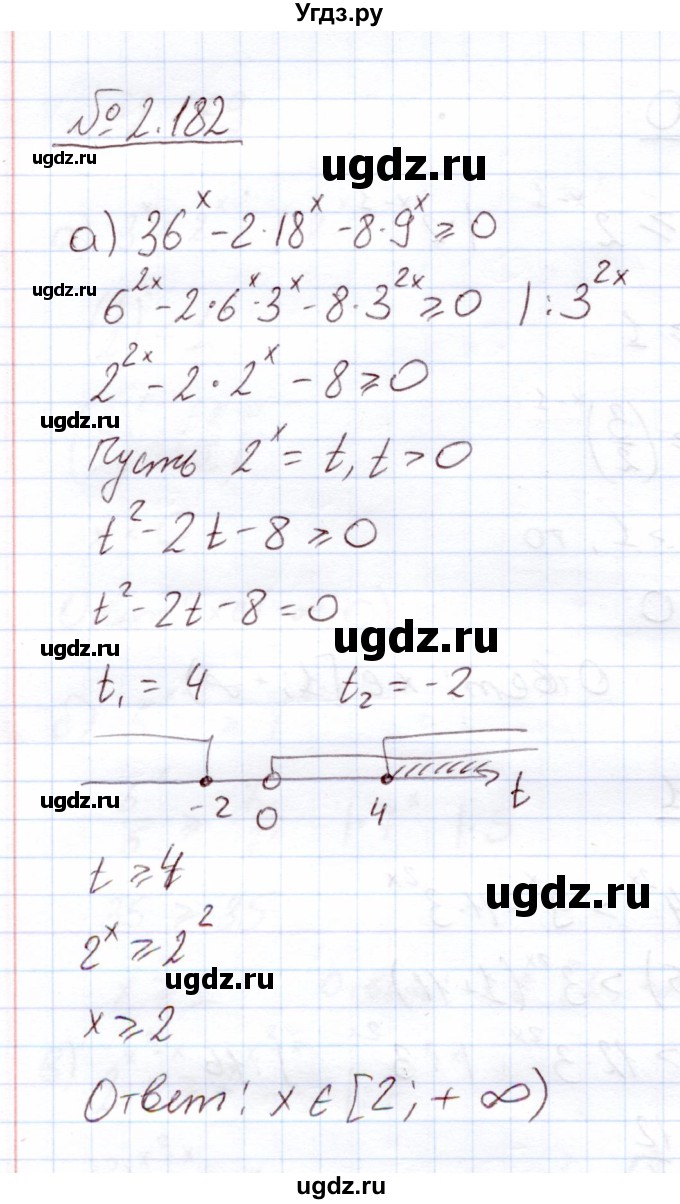 Угдз.ру
№ 2.182
ugdz.ru
ugdz.ru
а) 36^x - 2·18^x - 8·9^x ⩾ 0
ugdz.ru
6^{2x} - 2·6^x·3^x - 8·3^{2x} ⩾ 0 | : 3^{2x}
2^{2x} - 2·2^x - 8 ⩾ 0
ugdz.ru
Пусть 2^x = t, t > 0
t^2 - 2t - 8 ⩾ 0
ugdz.ru
t^2 - 2t - 8 = 0
ugdz.ru
ugdz.ru
t_1 = 4 t_2 = -2
ugdz.ru
-2 0 4 t
t ⩾ 4
ugdz.ru
2^x ⩾ 2^2
ugdz.ru
x ⩾ 2
Ответ: x ∈ [2; + ∞)
ugdz.ru